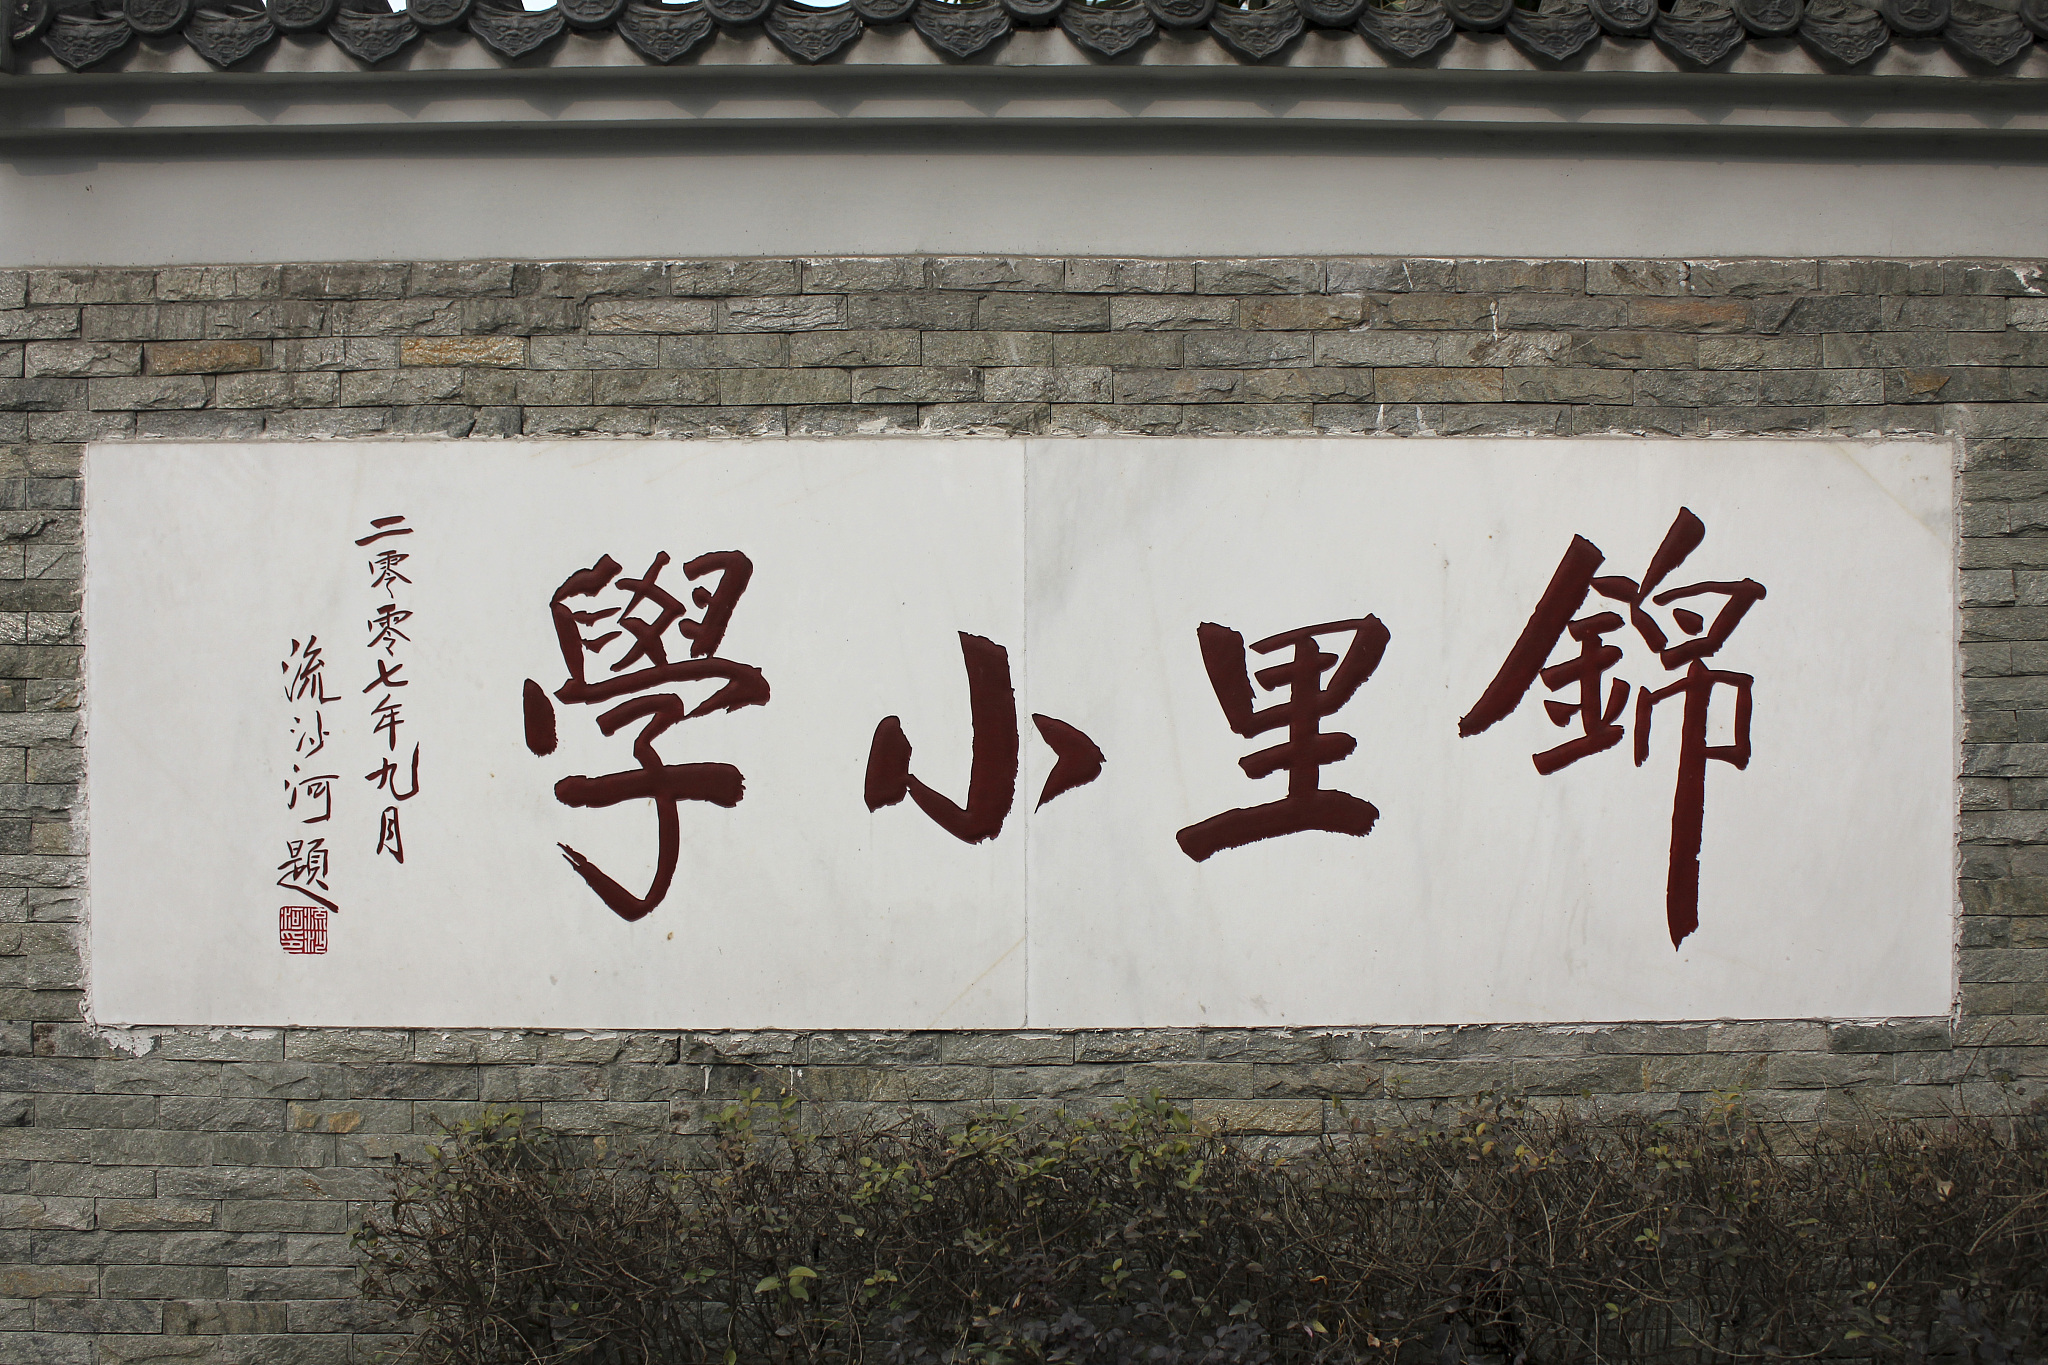 錦里小學
二零零七年九月
流沙河題
流沙河印